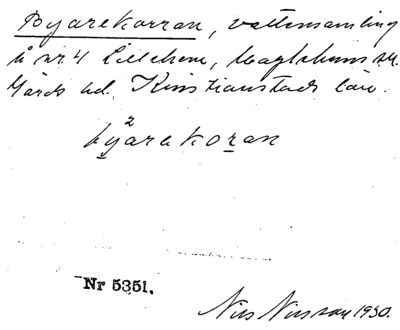 Byarekorran, vattensamling
å nr 4 Lillehem, Maglehems sn.
Gärds hd. Kristianstads län.
2
byarekoran
Nr 5351.
Nils Nilsson 1930.